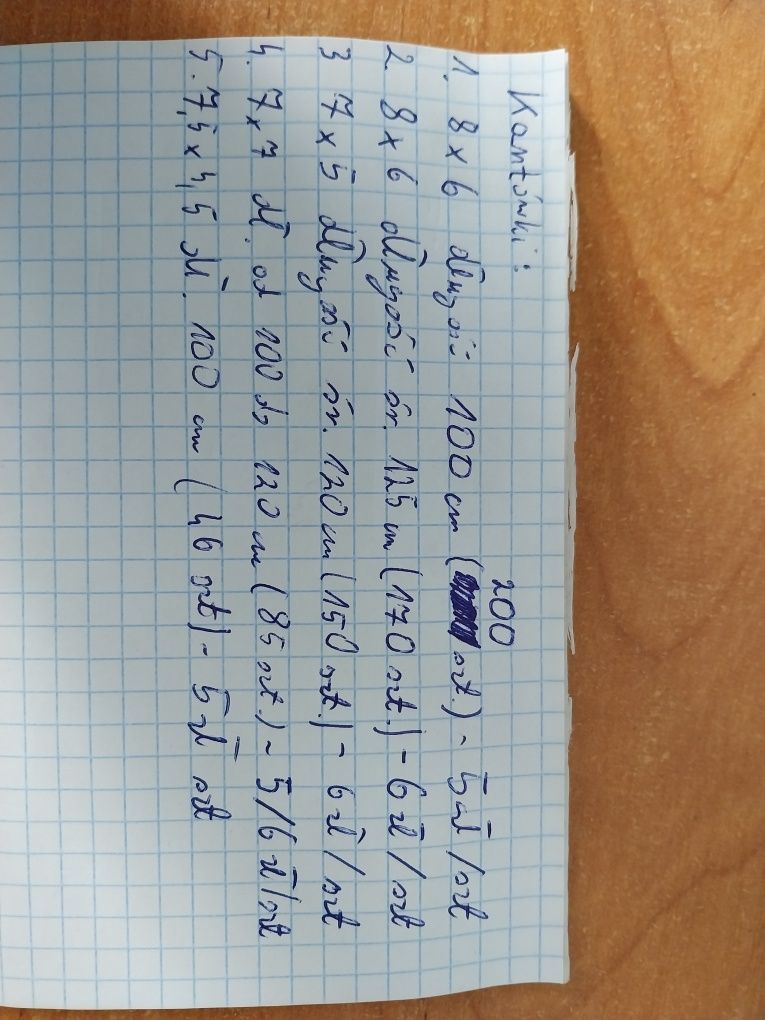 Kantówki:
1. 8 x 6 długość 100 cm (200 szt.) - 5 zł/szt
2. 8 x 6 długość śr. 125 cm (170 szt.) - 6 zł/szt
3 7 x 5 długość śr. 120 cm (150 szt.) - 6 zł/szt
4. 7 x 7 dł. od 100 do 120 cm (85 szt.) - 5/6 zł/szt
5. 7,5 x 4,5 dł. 100 cm (46 szt) - 5 zł szt